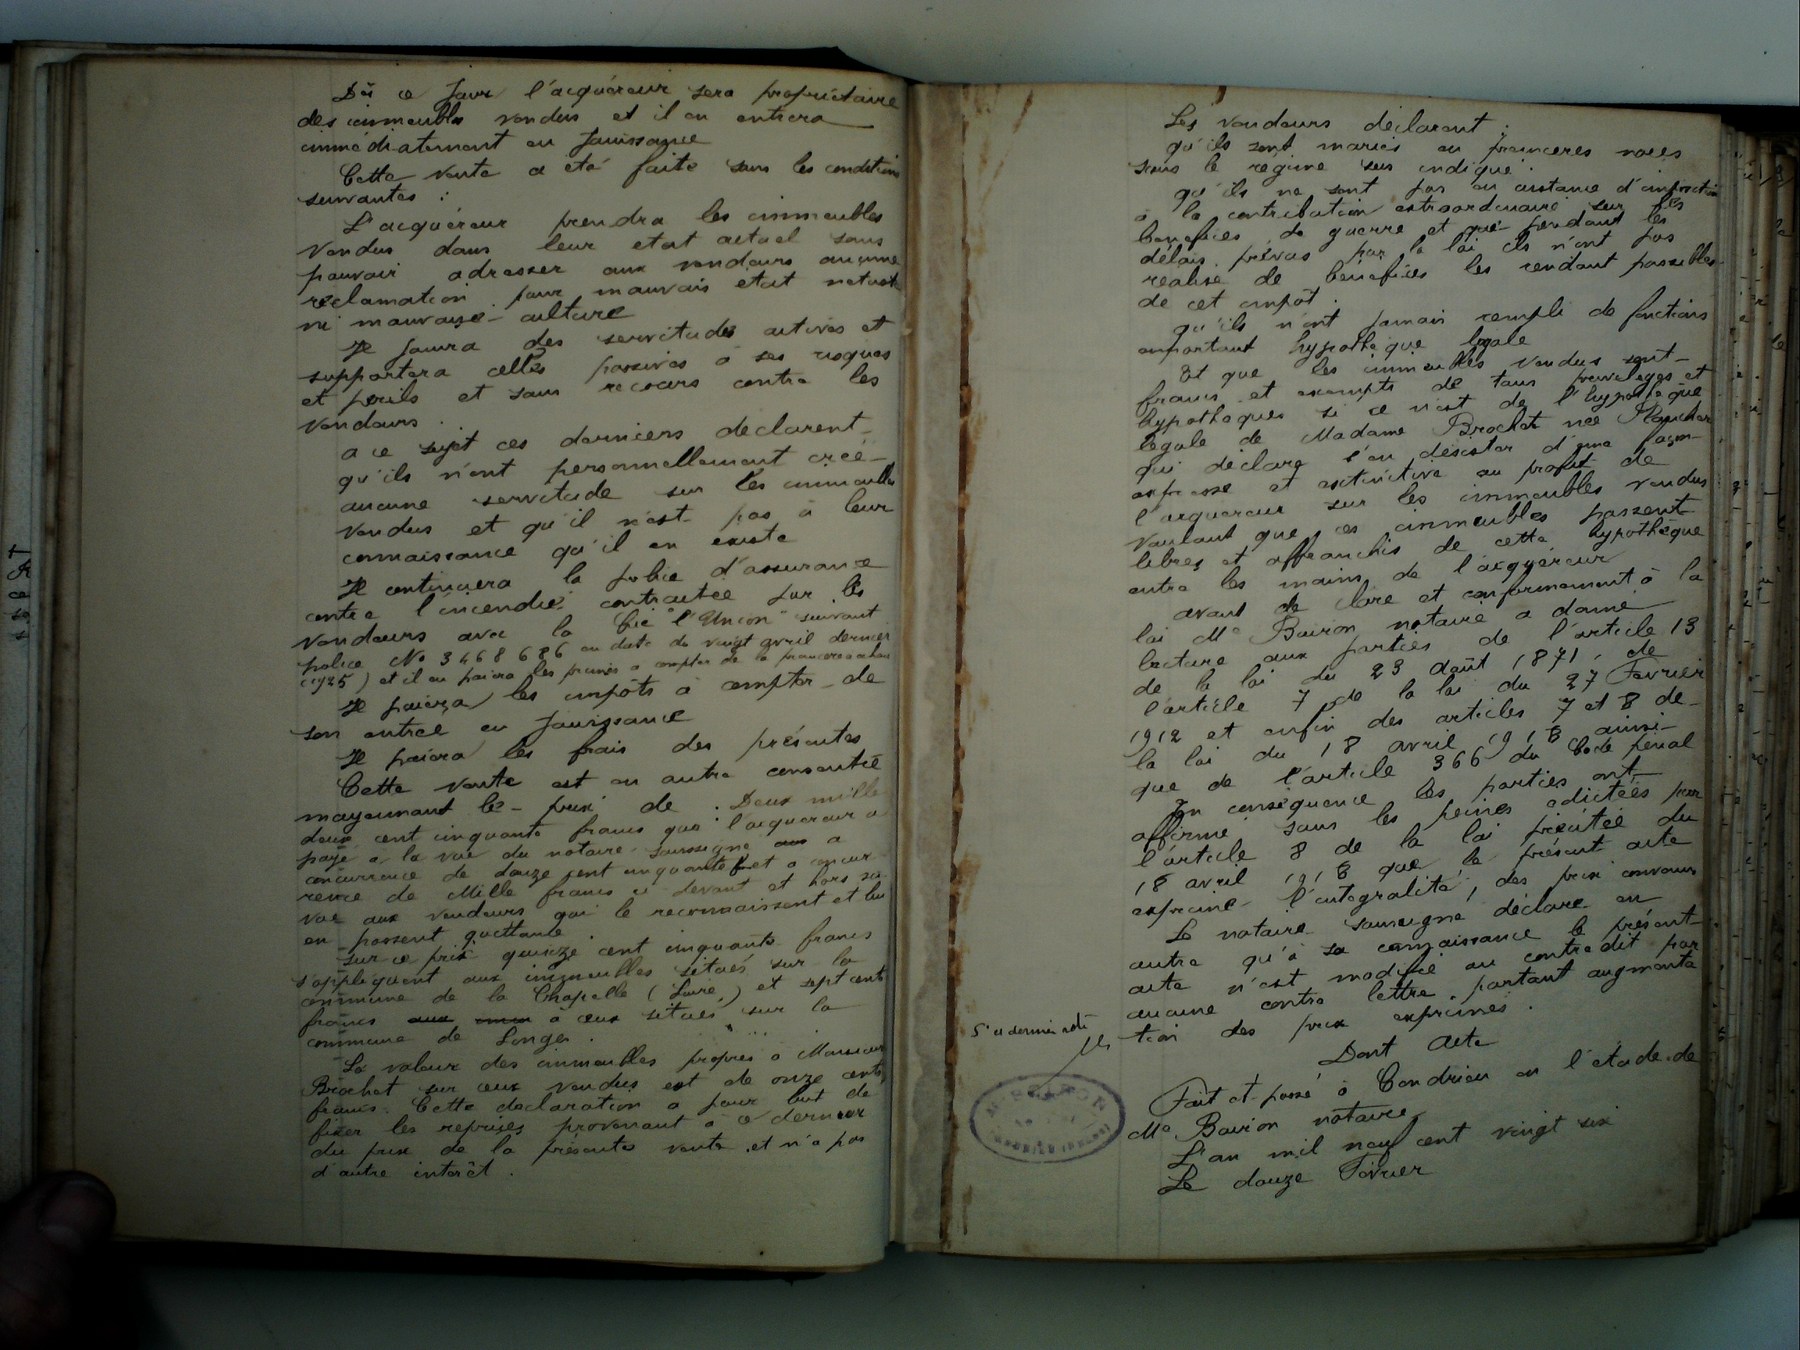 Dès ce jour l'acquéreur sera propriétaire
des immeubles vendus et il en entrera
immédiatement en jouissance
Cette vente a été faite sous les conditions
suivantes :
L'acquéreur prendra les immeubles
vendus dans leur etat actuel sans
pouvoir adresser aux vendeurs aucune
réclamation pour mauvais etat
ni mauvaise culture
Il jouira des servitudes actives et
supportera celles passives à ses risques
et périls et sans recours contre les
vendeurs.
a ce sujet ces derniers déclarent
qu'ils n'ont personnellement créé
aucune servitude sur les immeubles
vendus et qu'il n'est pas à leur
connaissance qu'il en existe
Il continuera la police d'assurance
contre l'incendie contractée par les
vendeurs avec la Cie "l'Union" suivant
police No 3468686 en date du vingt avril dernier
(1925) et il en paiera les primes a compter de la
Il paiera les impôts à compter de
son entrée en jouissance
Il paiera les frais des présentes
Cette vente est en outre consentie
moyennant le prix de : Deux mille
deux cent cinquante francs que l'acquereur a
payé à la vue du notaire soussigné a
concurrence de douze cent cinquante f et a concur
rence de Mille francs ci devant et hors sa
vue aux vendeurs qui le reconnaissent et lui
en passent quittance.
Sur ce prix quinze cent cinquante francs
s'appliquent aux immeubles situés sur la
commune de la Chapelle (Loire) et sept cents
francs à ceux situés sur la
commune de Longes.
La valeur des immeubles propres à Monsieur
Brochet sur ceux vendus est de onze cents
francs. Cette déclaration a pour but de
fixer les reprises provenant à ce dernier
du prix de la présente vente et n'a pas
d'autre intérêt.
Les vendeurs déclarent :
qu'ils sont mariés en premières noces
sous le régime sus indiqué
qu'ils ne sont pas en instance d'imposition
à la contribution extraordinaire sur les
bénéfices de guerre et que pendant les
délais prévus par la loi ils n'ont pas
réalisé de bénéfices les rendant passibles
de cet impôt.
qu'ils n'ont jamais rempli de fonctions
emportant hypothèque légale
Et que les immeubles vendus sont
francs et exempts de tous privilèges et
hypothèques si ce n'est de l'hypothèque
légale de Madame Brochet née
qui déclare s'en désister d'une façon
expresse et extinctive au profit de
l'acquereur sur les immeubles vendus
voulant que ces immeubles passent
libres et affranchis de cette hypothèque
entre les mains de l'acquéreur
avant de clore et conformément à la
loi Me Bairon notaire a donné
lecture aux parties de l'article 13
de la loi du 23 août 1871, de
l'article 7 de la loi du 27 Février
1912 et enfin des articles 7 et 8 de
la loi du 18 avril 1918 ainsi
que de l'article 366 du Code pénal
En conséquence les parties ont
affirmé sous les peines édictées par
l'article 8 de la loi précitée du
18 avril 1918 que le présent acte
exprime l'intégralité des prix convenus
Le notaire soussigné déclare en
outre qu'à sa connaissance le présent
acte n'est modifié ou contredit par
aucune contre lettre portant augmenta
tion des prix exprimés.
Dont Acte
Fait et passé à Condrieu en l'étude de
Me Bairon notaire
L'an mil neuf cent vingt six
Le douze Février